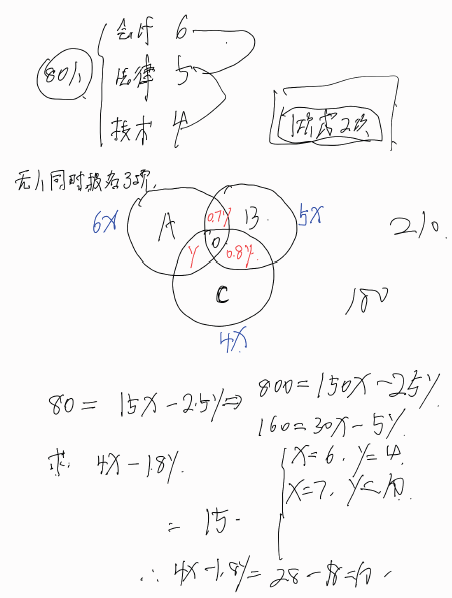 会计 6
80人
法律 5
技术 4
1项或2项
无人同时报名3项.
6X
A
0.7y
B
5X
y
0
0.8y
C
4X
210.
180
80 = 15X-2.5y⇒
800=150X-25y
160=30X-5y.
求. 4X-1.8y.
X=6, y=4.
X=7, y=10
= 15.
∴ 4X-1.8y= 28-18=10.